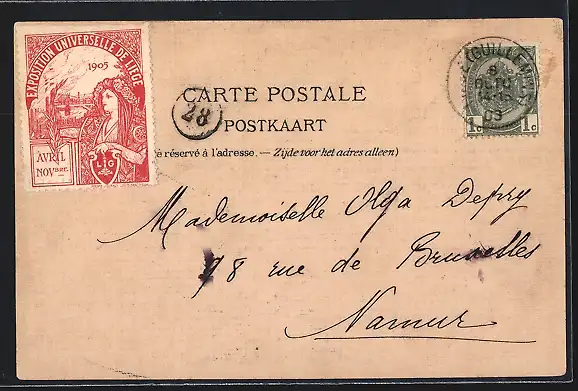 EXPOSITION UNIVERSELLE DE LIÉGE
1905
AVRIL
NOVBRE
LIG
28
CARTE POSTALE
POSTKAART
é réservé à l'adresse. — Zijde voor het adres alleen)
1c 1c
03
Mademoiselle Olga Depry
98 rue de Bruxelles
Namur